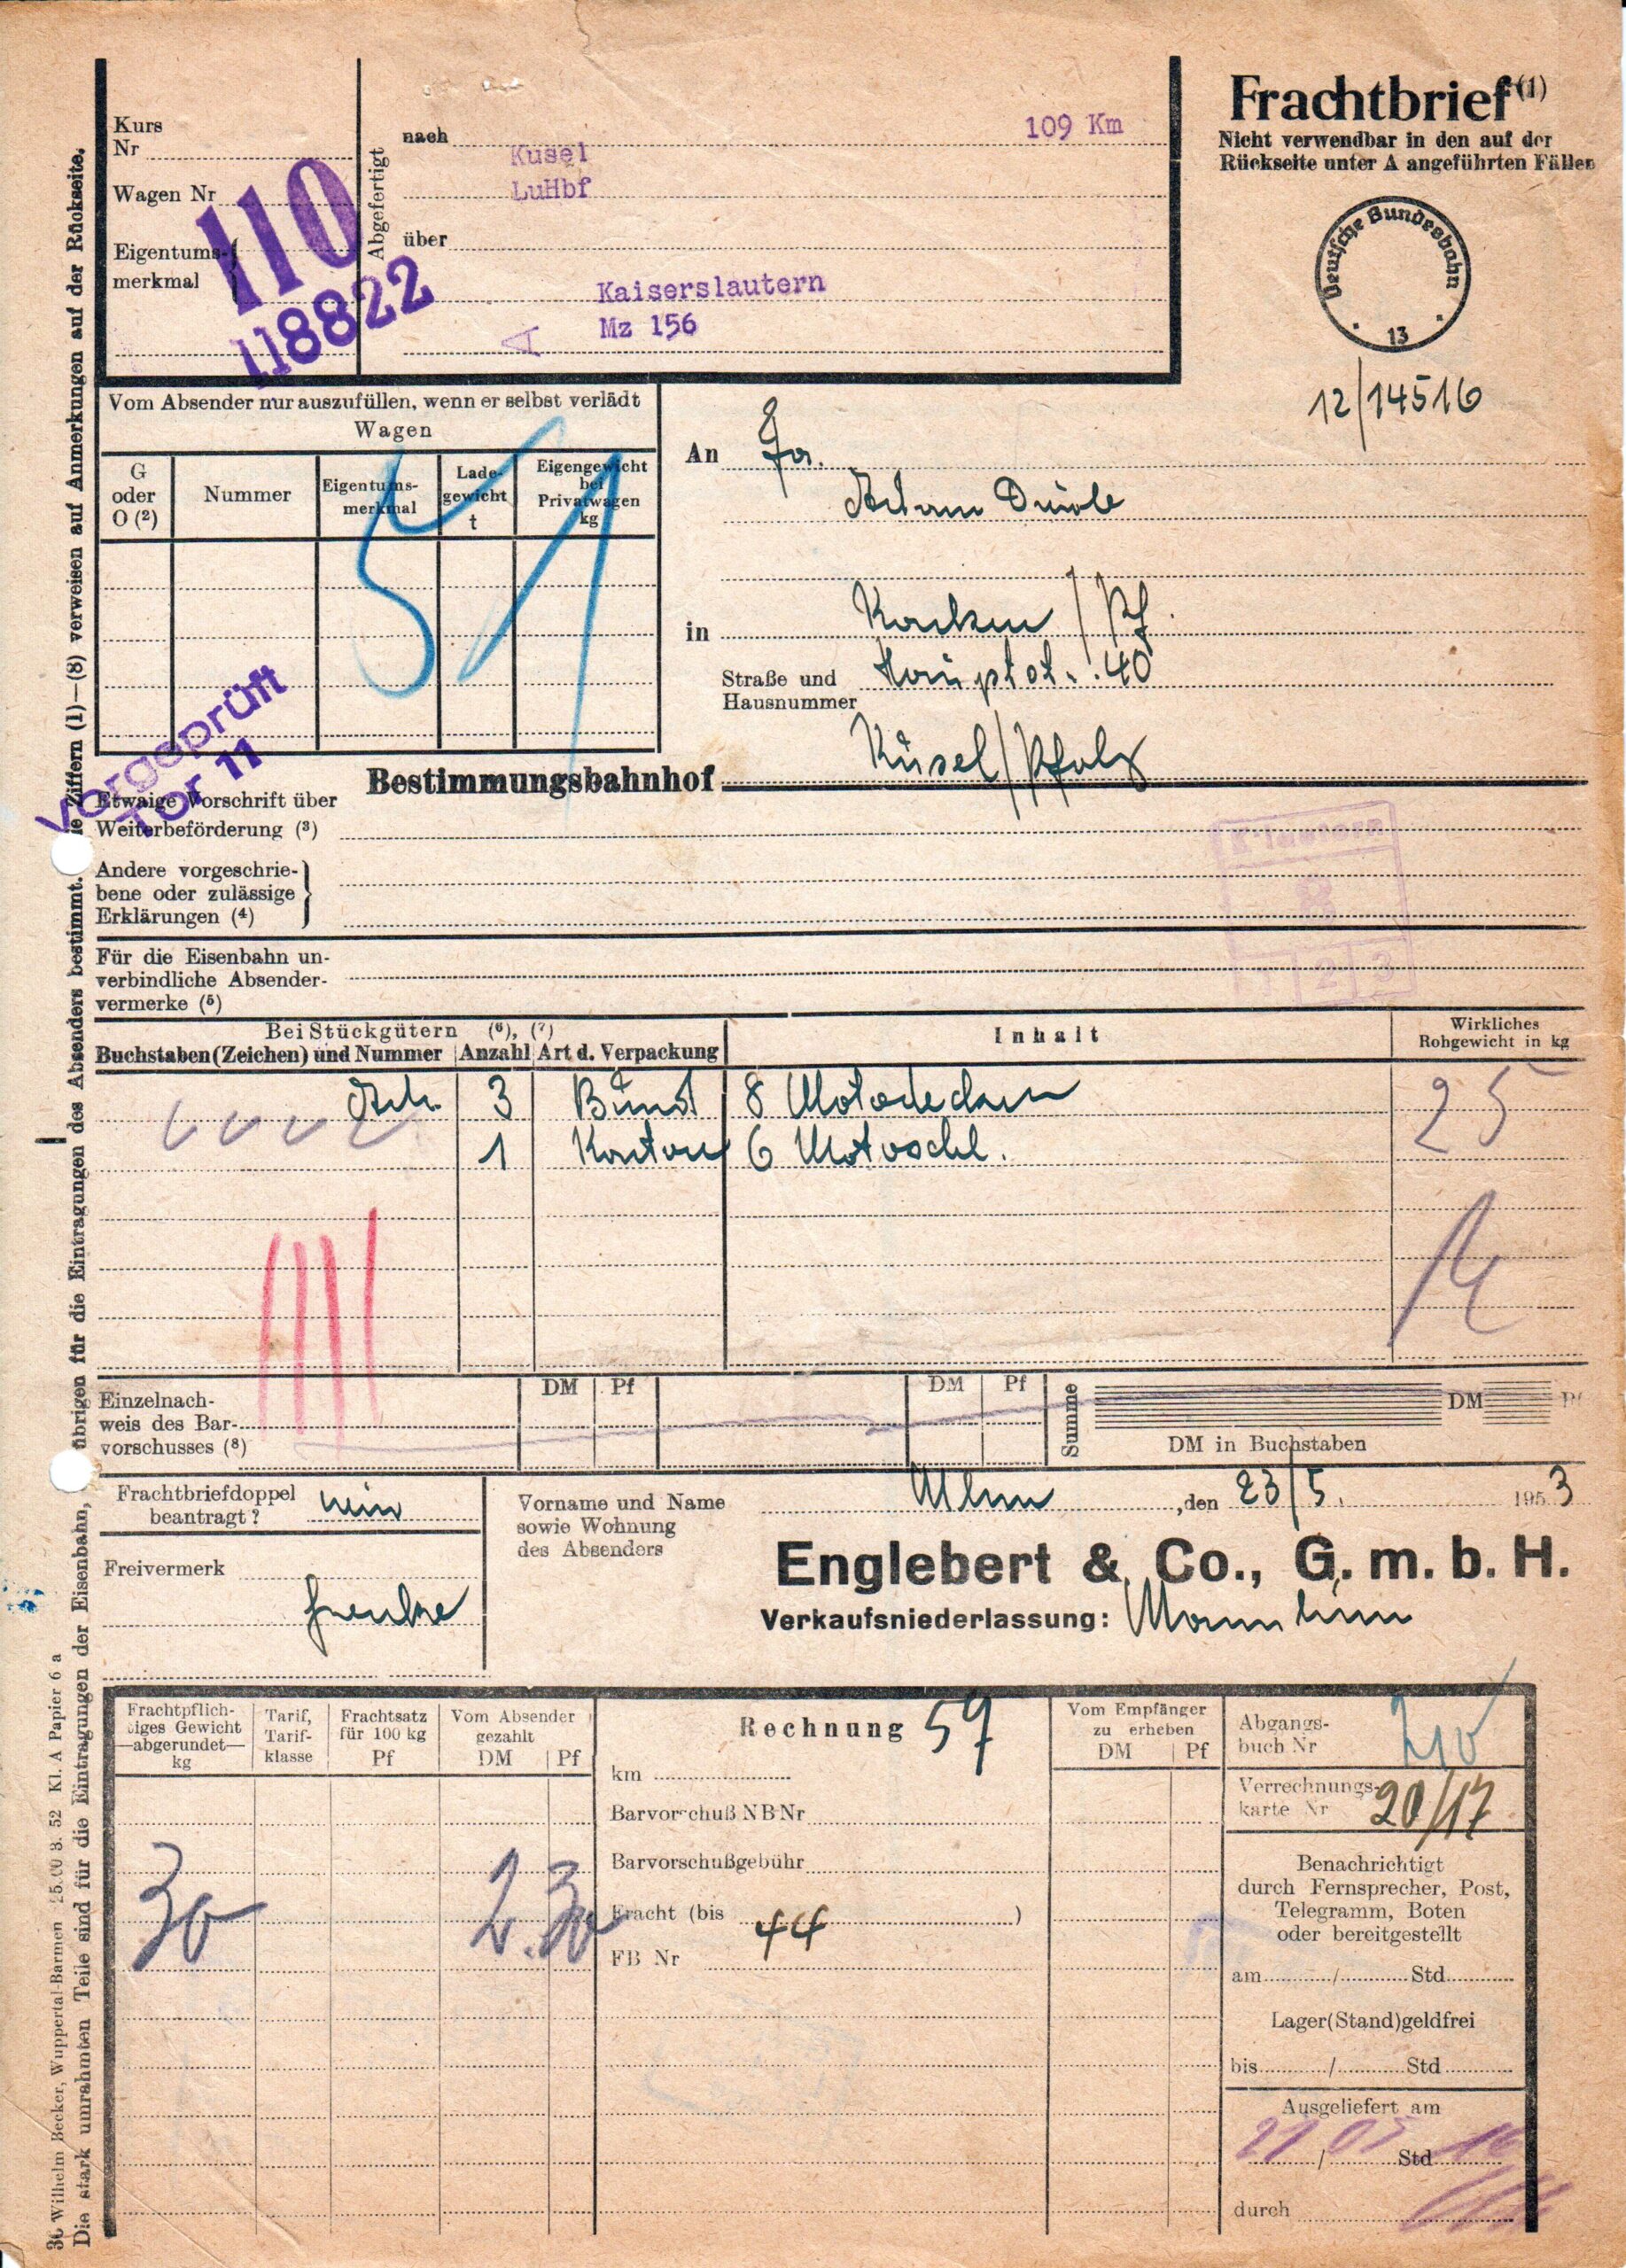 Frachtbrief (1)
Nicht verwendbar in den auf der
Rückseite unter A angeführten Fällen
Deutsche Bundesbahn
13
12/14516
Kurs
Nr
Wagen Nr
Eigentums-
merkmal
110
118822
Abgefertigt
nach
109 Km
Kusel
LuHbf
über
Kaiserslautern
A
Mz 156
Vom Absender nur auszufüllen, wenn er selbst verlädt
Wagen
G oder O (2)
Nummer
Eigentums-
merkmal
Lade-
gewicht
t
Eigengewicht
bei
Privatwagen
kg
51
An Fa.
Adam
in
/ Pf.
Straße und
Hausnummer
Hauptst. 40
Bestimmungsbahnhof Kusel/Pfalz
Vorgeprüft
Tor 11
Etwaige Vorschrift über
Weiterbeförderung (3)
Andere vorgeschrie-
bene oder zulässige
Erklärungen (4)
K'lautern
8
1 2 3
Für die Eisenbahn un-
verbindliche Absender-
vermerke (5)
Bei Stückgütern (6), (7)
Buchstaben (Zeichen) und Nummer Anzahl Art d. Verpackung
Inhalt
Wirkliches
Rohgewicht in kg
Adr. 3 Bund 8 Motodecken 25
1 Karton 6 Motoschl.
Einzelnach-
weis des Bar-
vorschusses (8)
DM Pf
DM Pf
Summe
DM Pf
DM in Buchstaben
Frachtbriefdoppel
beantragt? nein
Freivermerk
Vorname und Name
sowie Wohnung
des Absenders
, den 23/5. 1953
Englebert & Co., G. m. b. H.
Verkaufsniederlassung: Mannheim
Frachtpflich-
tiges Gewicht
—abgerundet—
kg
Tarif,
Tarif-
klasse
Frachtsatz
für 100 kg
Pf
Vom Absender
gezahlt
DM Pf
Rechnung 59
km
Barvorschuß NB Nr
Barvorschußgebühr
Fracht (bis )
FB Nr
44
30
2.30
Vom Empfänger
zu erheben
DM Pf
Abgangs-
buch Nr
Verrechnungs-
karte Nr 20/17
Benachrichtigt
durch Fernsprecher, Post,
Telegramm, Boten
oder bereitgestellt
am / Std
Lager(Stand)geldfrei
bis / Std
Ausgeliefert am
/ Std
durch
Die Ziffern (1)—(8) verweisen auf Anmerkungen auf der Rückseite.
Die stark umrahmten Teile sind für die Eintragungen der Eisenbahn, übrigen für die Eintragungen des Absenders bestimmt.
Wilhelm Becker, Wuppertal-Barmen 3. 52 Kl. A Papier 6 a